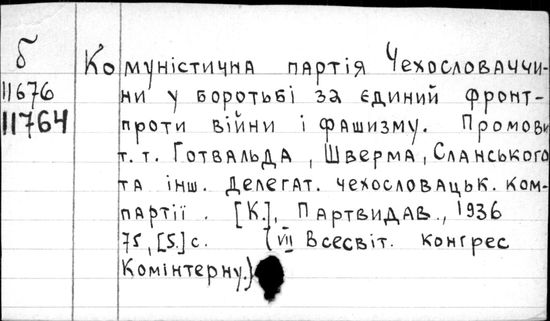 б
11676
11764
Комуністична партія Чехословаччи-
ни у боротьбі за єдиний фронт-
проти війни і фашизму. Промови
т.т. Готвальда, Шверма, Сланського
та інш. делегат. чехословацьк. ком-
партії. [К.], Партвидав., 1936
75, [5.] с. (VII Всесвіт. конгрес
Комінтерну.)